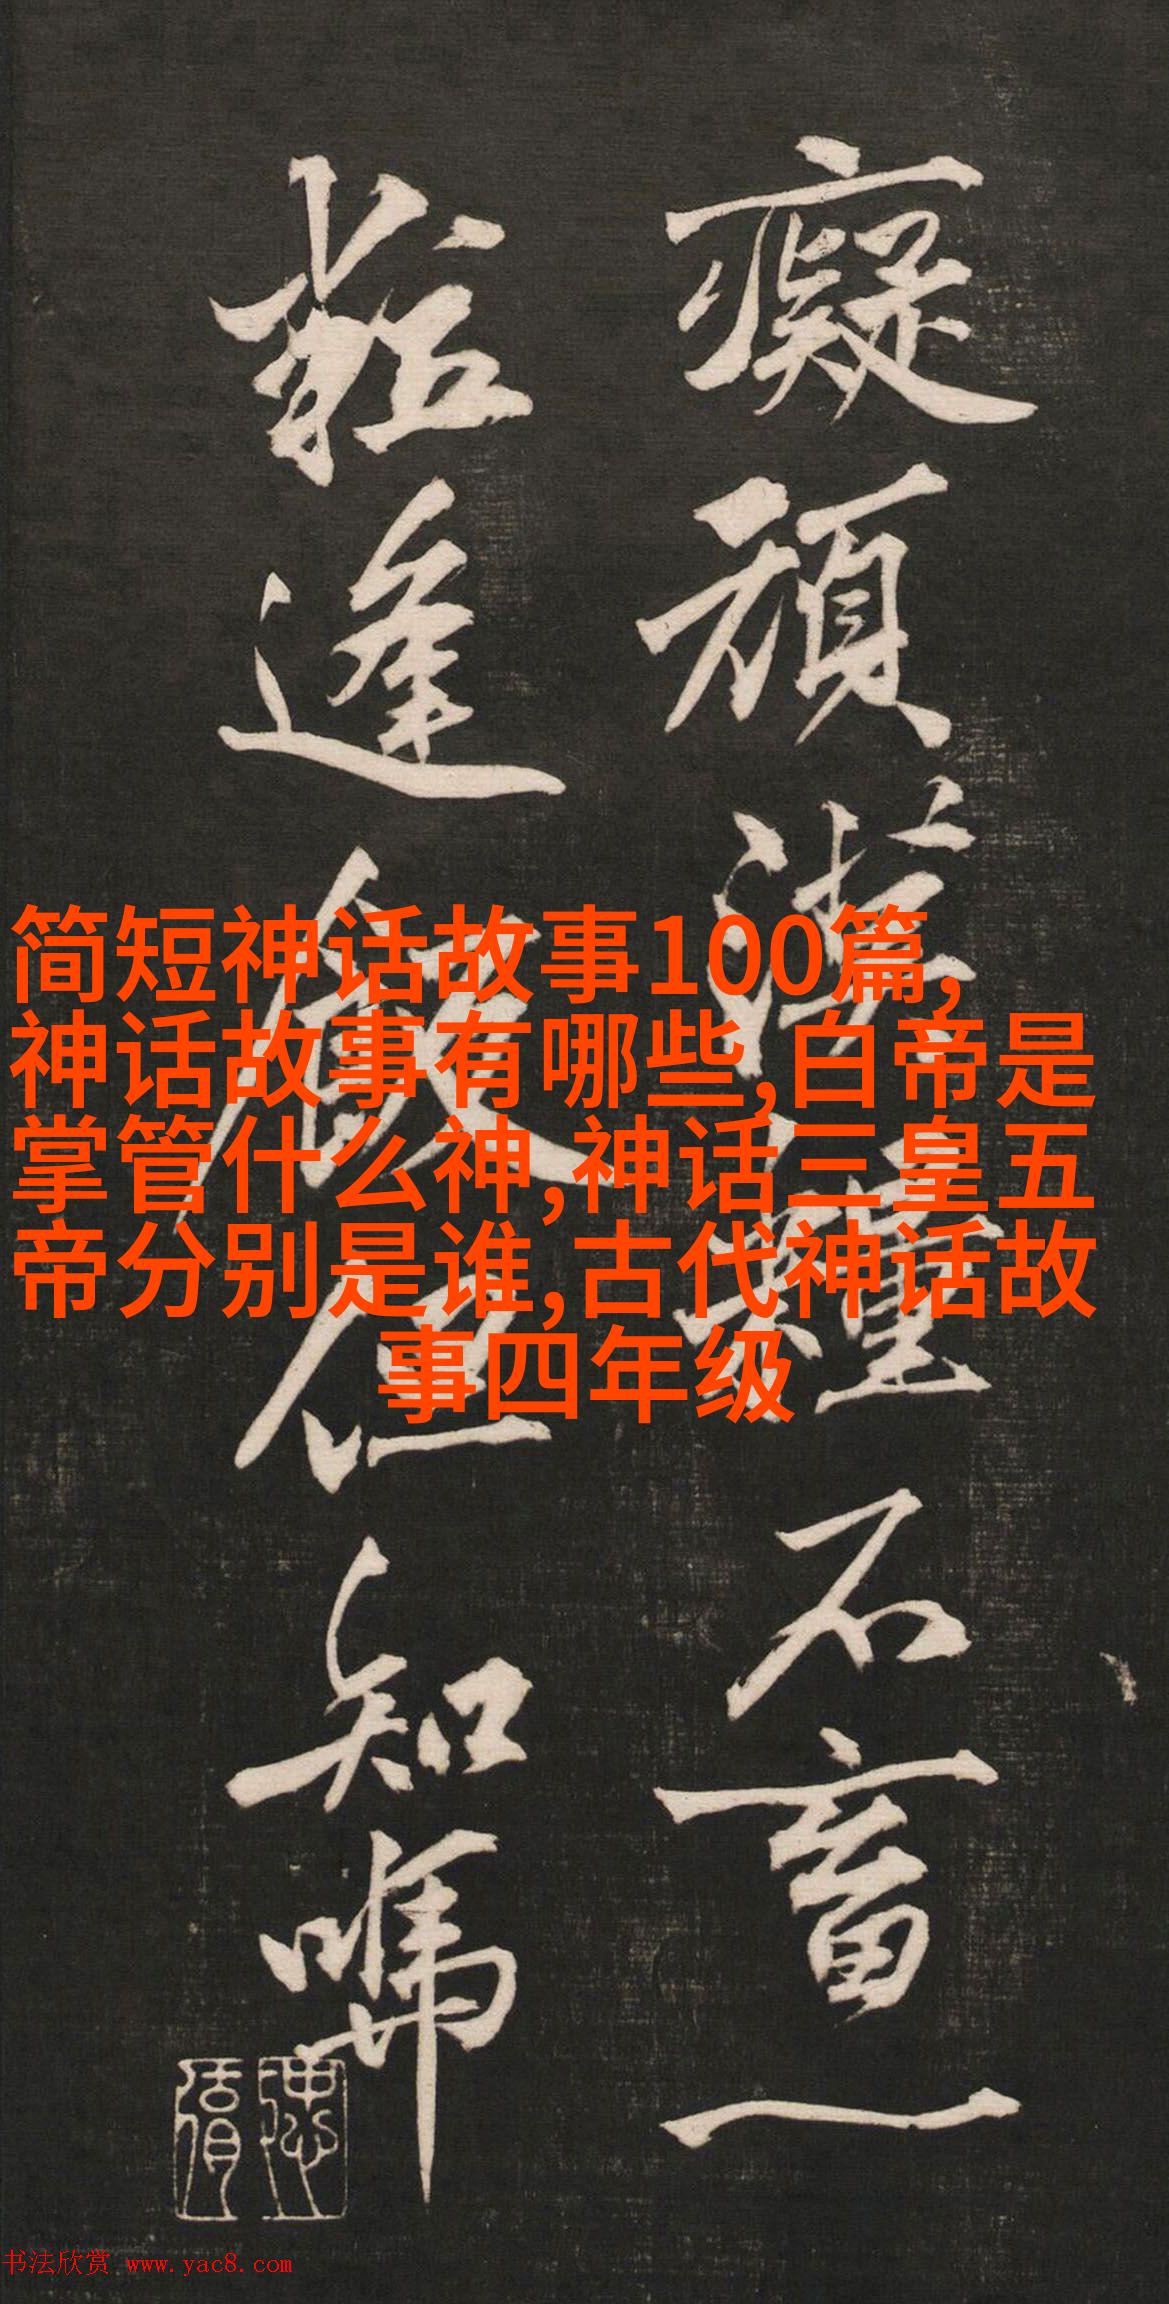 癡頑種不畜一
粒逢饑但知嗁
简短神话故事100篇,
神话故事有哪些,白帝是
掌管什么神,神话三皇五
帝分别是谁,古代神话故
事四年级
书法欣赏 www.yac8.com